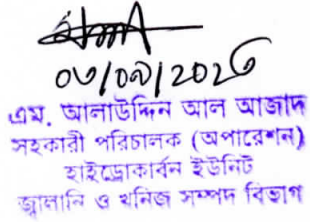 ০৩/০৯/2026
এম. আলাউদ্দিন আল আজাদ
সহকারী পরিচালক (অপারেশন)
হাইড্রোকার্বন ইউনিট
জ্বালানি ও খনিজ সম্পদ বিভাগ